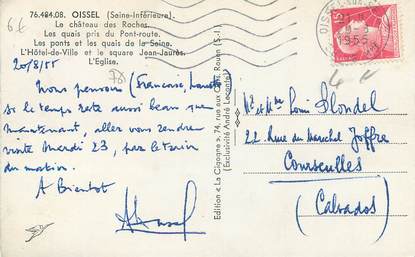 6€
76.484.08. OISSEL (Seine-Inférieure).
Le château des Roches.
Les quais pris du Pont-route.
Les ponts et les quais de la Seine.
L'Hôtel-de-Ville et le square Jean-Jaurès.
L'Église.
20/8/55
Nous pensons (Françoise,
si le temps reste aussi beau que
maintenant, aller vous rendre
visite Mardi 23, par le train
du matin.
A Bientôt
Edition « La Cigogne », 74, rue aux Ours, Rouen (S.-I.)
(Exclusivité André Leconte)
OISSEL
1955
Mr et Mme Louis Blondel
22 Rue du Marechal Joffre
Courseulles
(Calvados)